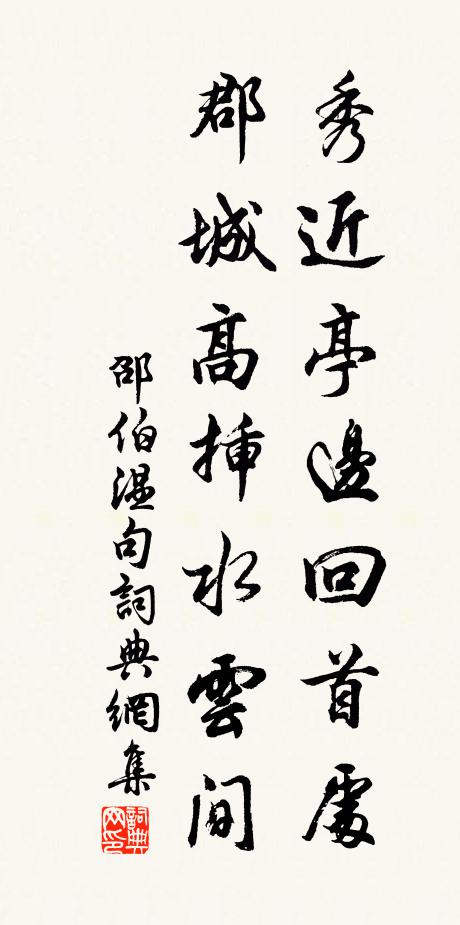 秀近亭邊回首處
郡城高揷水雲間
邵伯溫句詞典網集
詞典网印